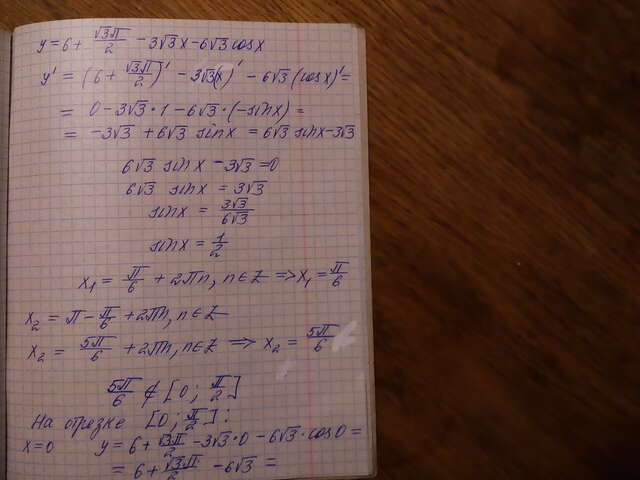 y = 6 + √3π/2 - 3√3x - 6√3 cosx
y' = (6 + √3π/2)' - 3√3(x)' - 6√3 (cosx)' =
= 0 - 3√3 · 1 - 6√3 · (-sinx) =
= -3√3 + 6√3 sinx = 6√3 sinx - 3√3
6√3 sinx - 3√3 = 0
6√3 sinx = 3√3
sinx = 3√3/6√3
sinx = 1/2
x₁ = π/6 + 2πn, n∈Z => x₁ = π/6
x₂ = π - π/6 + 2πn, n∈Z
x₂ = 5π/6 + 2πn, n∈Z => x₂ = 5π/6
5π/6 ∉ [0; π/2]
На отрезке [0; π/2]:
x=0 y = 6 + √3π/2 - 3√3·0 - 6√3 · cos0 =
= 6 + √3π/2 - 6√3 =